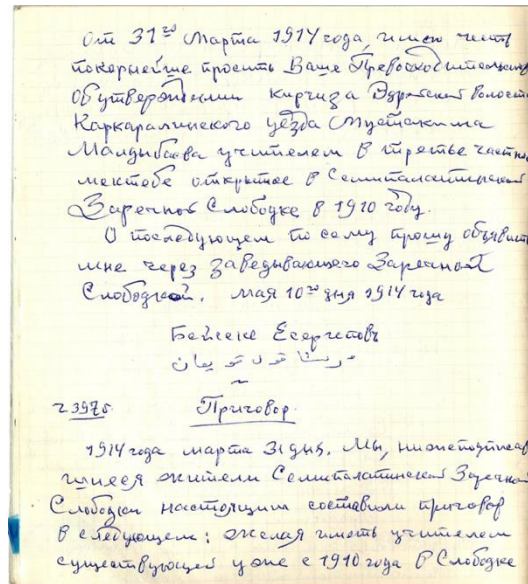 От 31го Марта 1914 года, имею честь
покорнейше просить Ваше Превосходительство
об утверждении киргиза Эдрейской волости
Каркаралинского уезда Мустакима
Малдыбаева учителем в третье частно
мектебе открытое в Семипалатинской
Заречной Слободке в 1910 году.
О последующем по сему прошу объявить
мне через заведывающего Заречной
Слободкой. Мая 10го дня 1914 года
Бейсеке Есергеповъ
Приговор
1914 года марта 31 дня. Мы, нижеподписав
шиеся жители Семипалатинской Заречной
Слободки настоящим составили приговор
в следующем: желая иметь учителем
существующей уже с 1910 года в Слободке